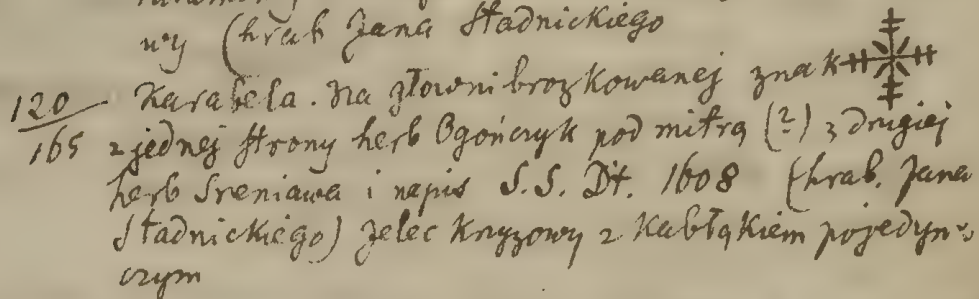 wy (hrab Jana Stadnickiego
120/165 Karabela. Na głowni brozkowanej znak
z jednej strony herb Ogończyk pod mitrą (?) z drugiej
herb Sreniawa i napis S. S. Dt. 1608 (hrab. Jana
Stadnickiego) Jelec Krzyzowy z Kabłąkiem pojedyn-
czym